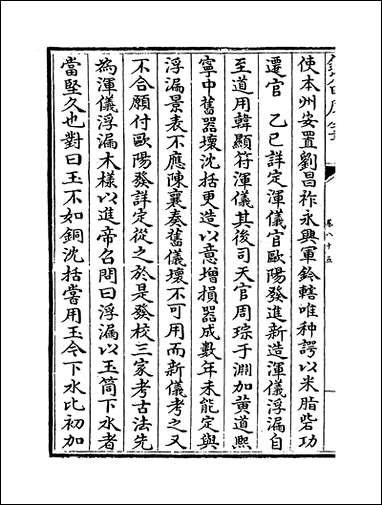 卷八十五
使本州安置劉昌祚永興軍鈐轄唯种諤以米脂砦功
遷官　乙巳詳定渾儀官歐陽發進新造渾儀浮漏自
至道用韓顯符渾儀其後司天官周琮于淵加黄道熙
寧中舊器壞沈括更造以意增損器成數年未能定與
浮漏景表不應陳襄奏舊儀壞不可用而新儀考之又
不合願付歐陽發詳定從之於是發校三家考古法先
為渾儀浮漏木樣以進帝召問曰浮漏以玉筒下水者
當堅久也對曰玉不如銅沈括嘗用玉今下水比初加